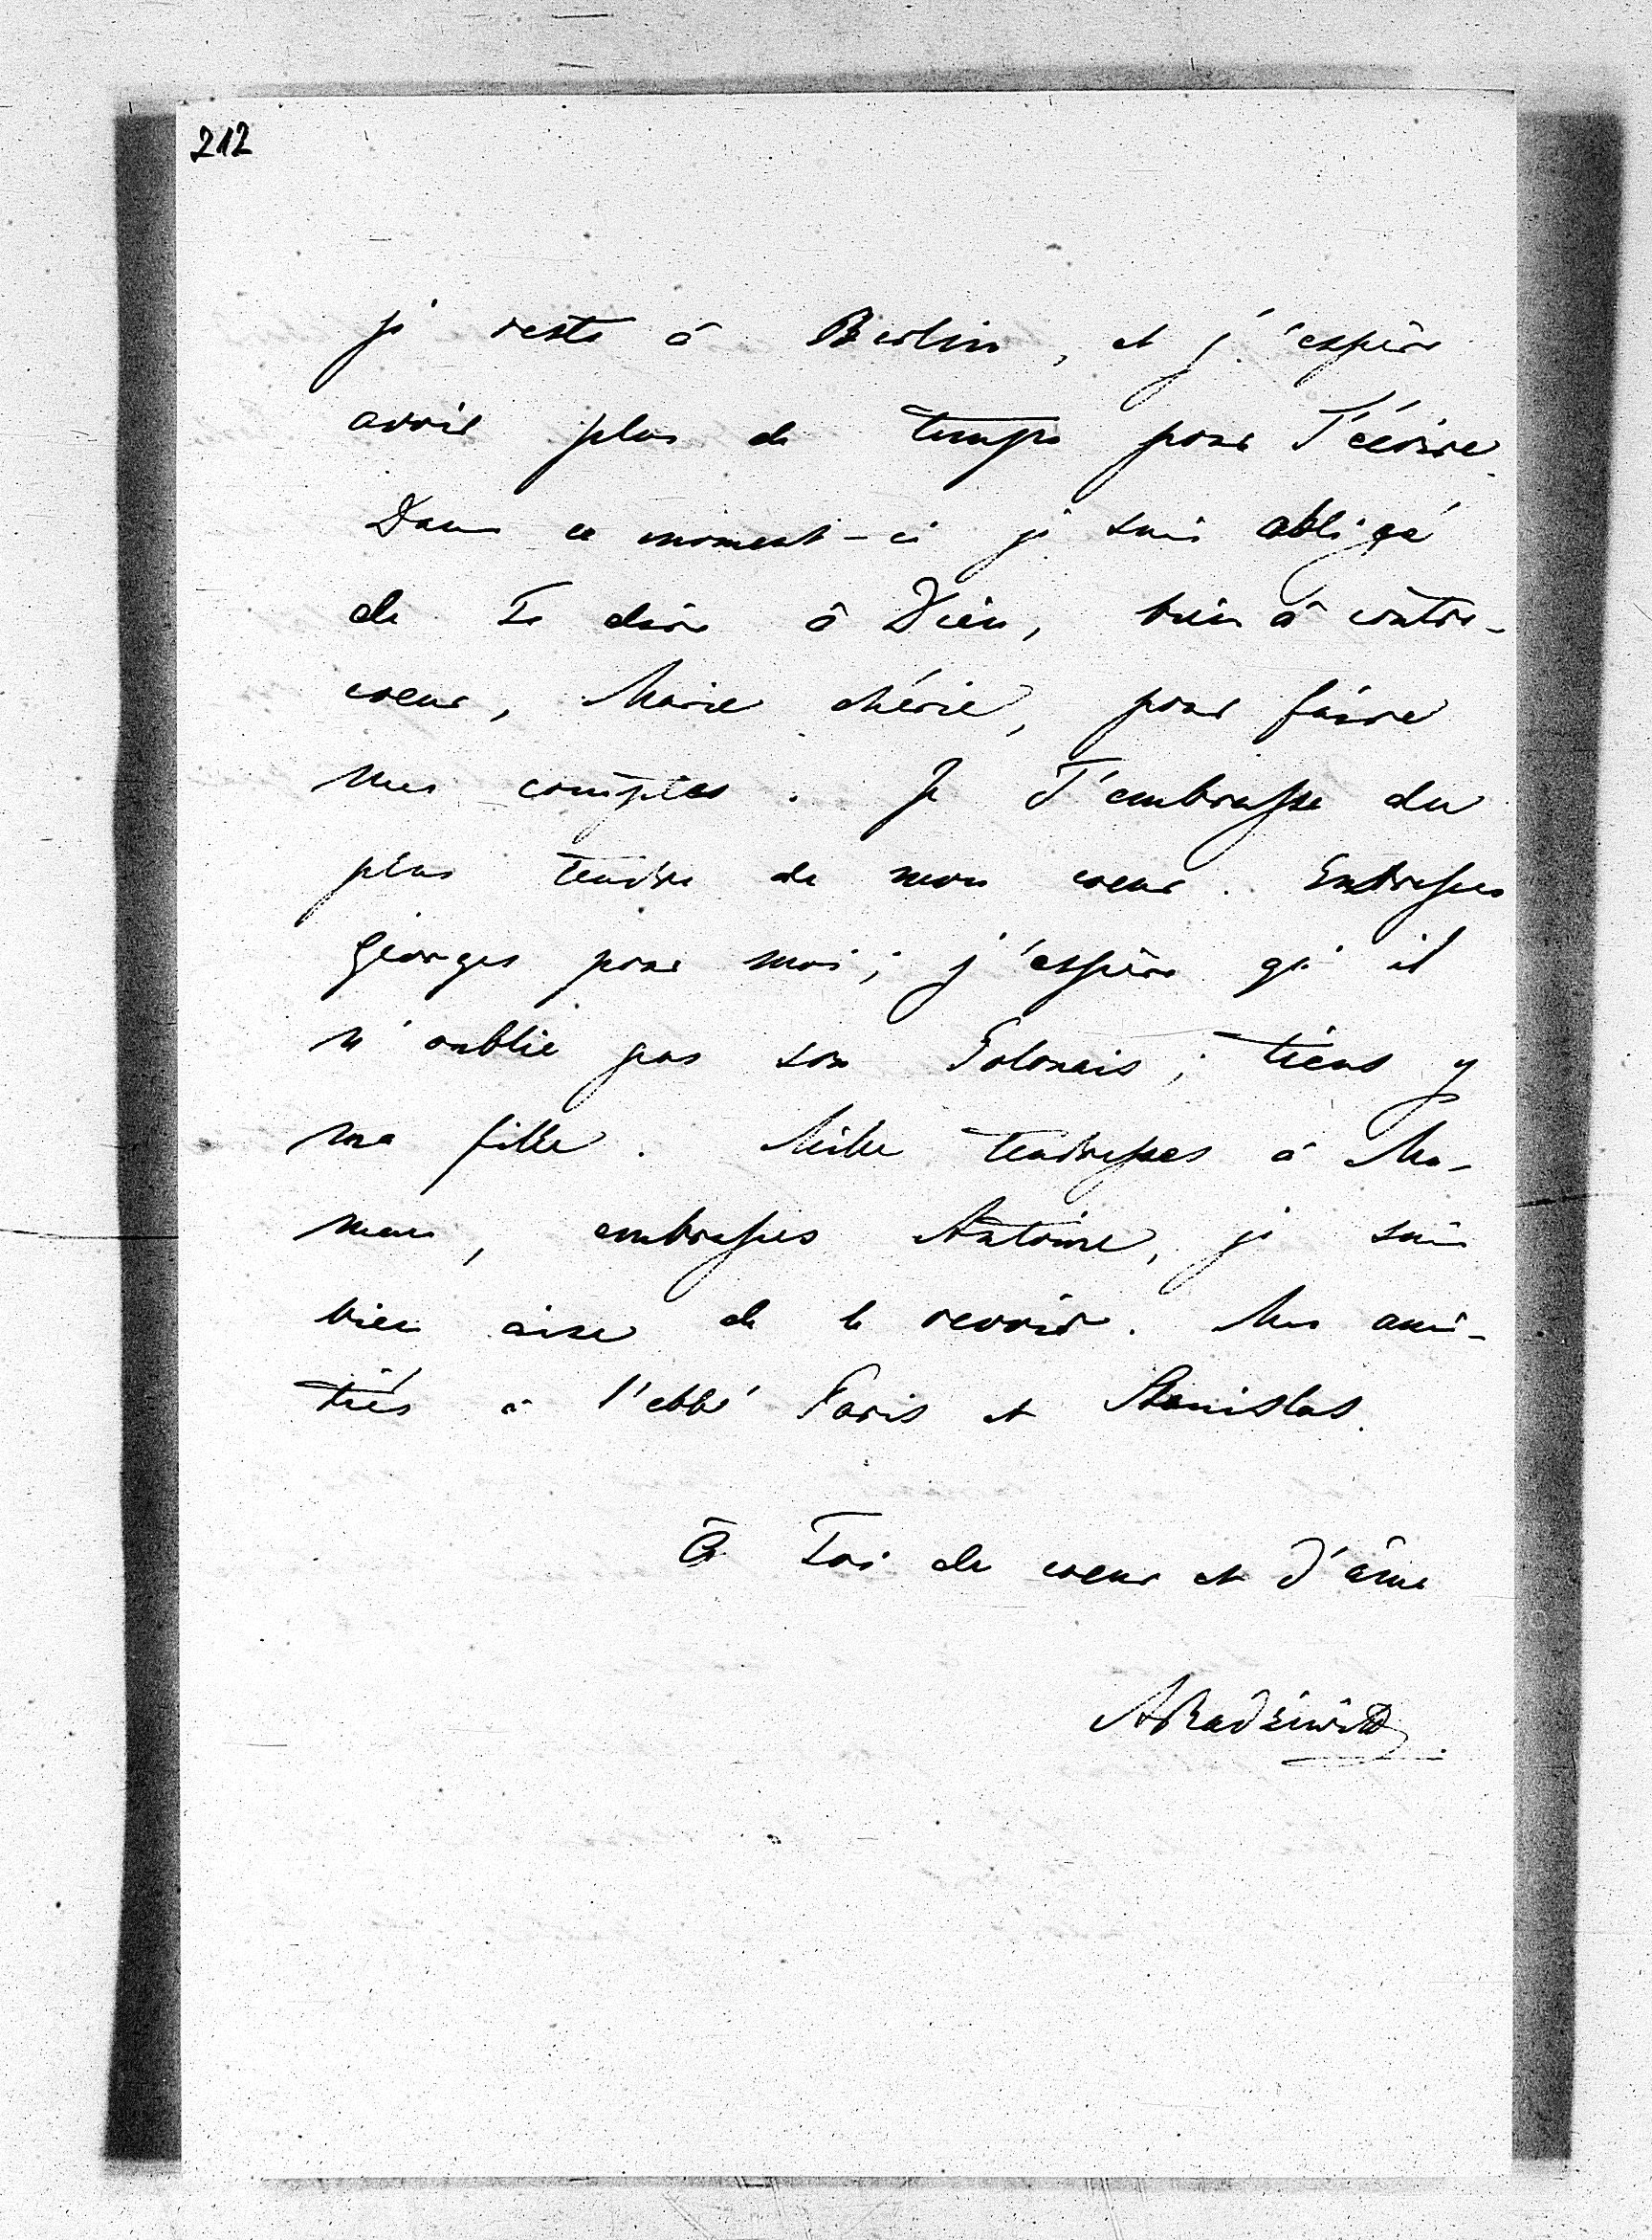 212
je reste à Berlin, et j'espère
avoir plus de temps pour T'écrire.
Dans ce moment-ci je suis obligé
de Te dire à Dieu, bien à contre-
coeur, Marie chérie, pour faire
mes comptes. Je T'embrasse du
plus tendre de mon coeur. Embrasses
Georges pour moi; j'espère qu'il
n'oublie pas son Polonais; tiens y
ma fille. Mille tendresses à Ma-
man, embrasses Antoine, je suis
bien aise de le revoir. Mes ami-
tiés à l'abbé Faris et Stanislas.
À Toi de coeur et d'âme
ARadziwiłł